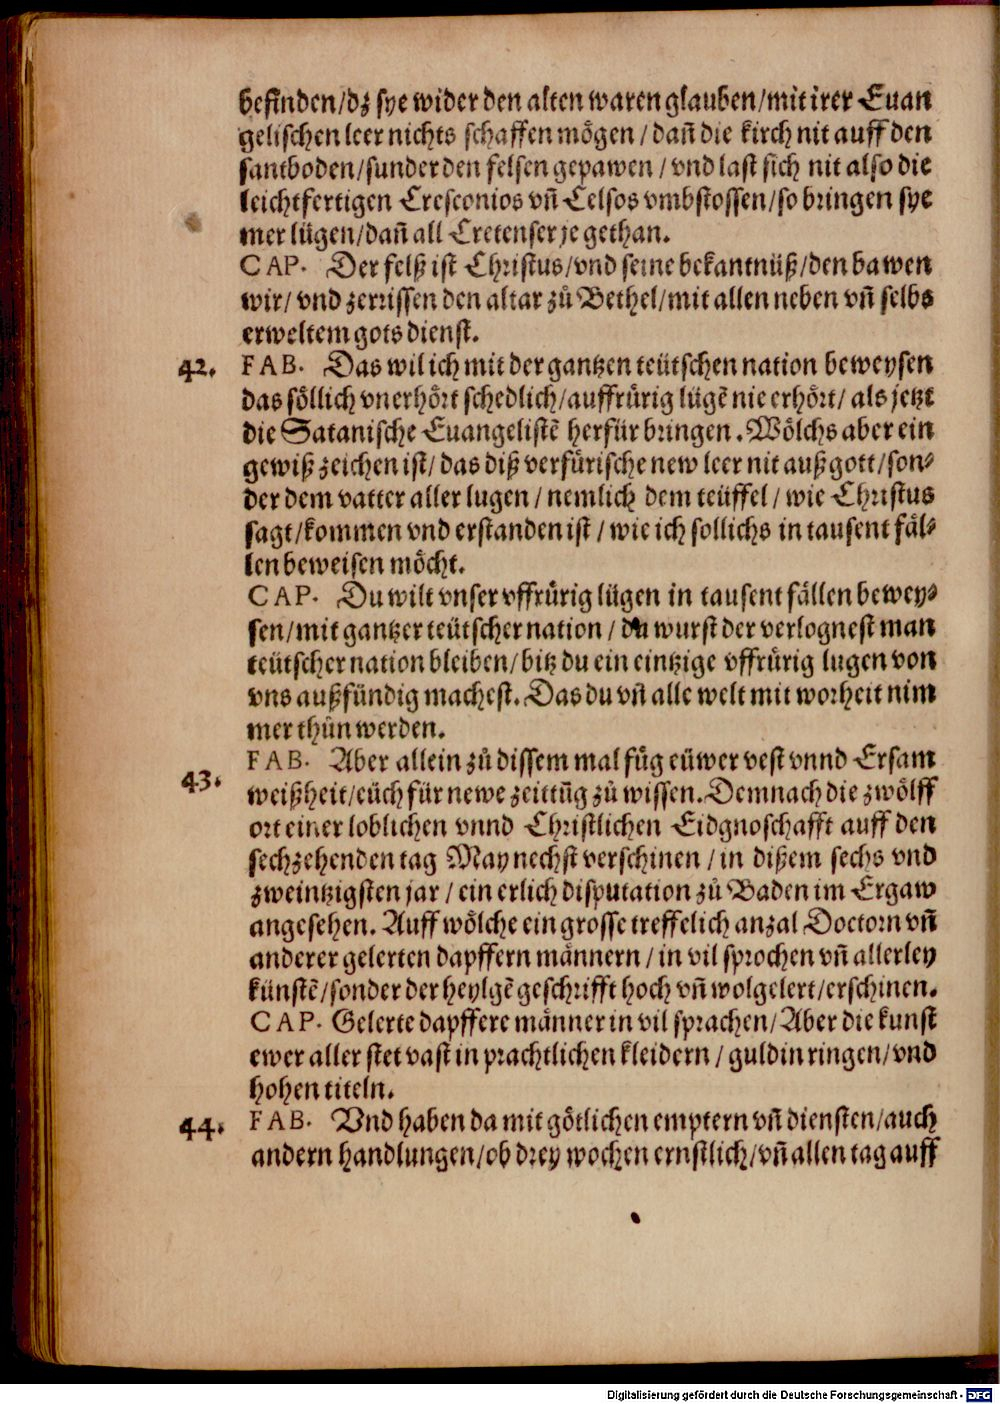 befinden/dz sye wider den alten waren glauben/mit irer Euan
gelischen leer nichts schaffen mögen/dañ die kirch nit auff den
santboden/sunder den felsen gepawen/vnd last sich nit also die
leichtfertigen Cresconios vñ Celsos vmbstossen/so bringen sye
mer lügen/dañ all Cretenser je gethan.
CAP. Der felß ist Christus/vnd seine bekantnüß/den bawen
wir/ vnd zerrissen den altar zů Bethel/mit allen neben vñ selbs
erweltem gots dienst.
42. FAB. Das wil ich mit der gantzen teütschen nation beweysen
das söllich vnerhört schedlich/auffrürig lügẽ nie erhört/ als jetzt
die Satanische Euangelistẽ herfür bringen. Wölchs aber ein
gewiß zeichen ist/das diß verfürische new leer nit auß gott/son⸗
der dem vatter aller lugen/nemlich dem teüffel/wie Christus
sagt/kommen vnd erstanden ist/wie ich sollichs in tausent fäl⸗
len beweisen möcht.
CAP. Du wilt vnser vffrürig lügen in tausent fällen bewey⸗
sen/mit gantzer teütscher nation/du wurst der verlognest man
teütscher nation bleiben/bitz du ein eintzige vffrürig lugen von
vns außfündig machest. Das du vñ alle welt mit worheit nim
mer thůn werden.
43. FAB. Aber allein zů dissem mal füg eüwer vest vnnd Ersam
weißheit/eüch für newe zeittũg zů wissen. Demnach die zwölff
ort einer loblichen vnnd Christlichen Eidgnoschafft auff den
sechzehenden tag May nechst verschinen/in dißem sechs vnd
zweintzigsten jar/ein erlich disputation zů Baden im Ergaw
angesehen. Auff wölche ein grosse treffelich anzal Doctorn vñ
anderer gelerten dapffern männern/in vil sprochen vñ allerley
künstẽ/sonder der heylgẽ geschrifft hoch vñ wolgelert/erschinen.
CAP. Gelerte dapffere männer in vil sprachen/Aber die kunst
ewer aller stet vast in prachtlichen kleidern/guldin ringen/vnd
hohen titeln.
44. FAB. Vnd haben da mit götlichen emptern vñ diensten/auch
andern handlungen/ob drey wochen ernstlich/vñ allen tag auff
Digitalisierung gefördert durch die Deutsche Forschungsgemeinschaft - DFG